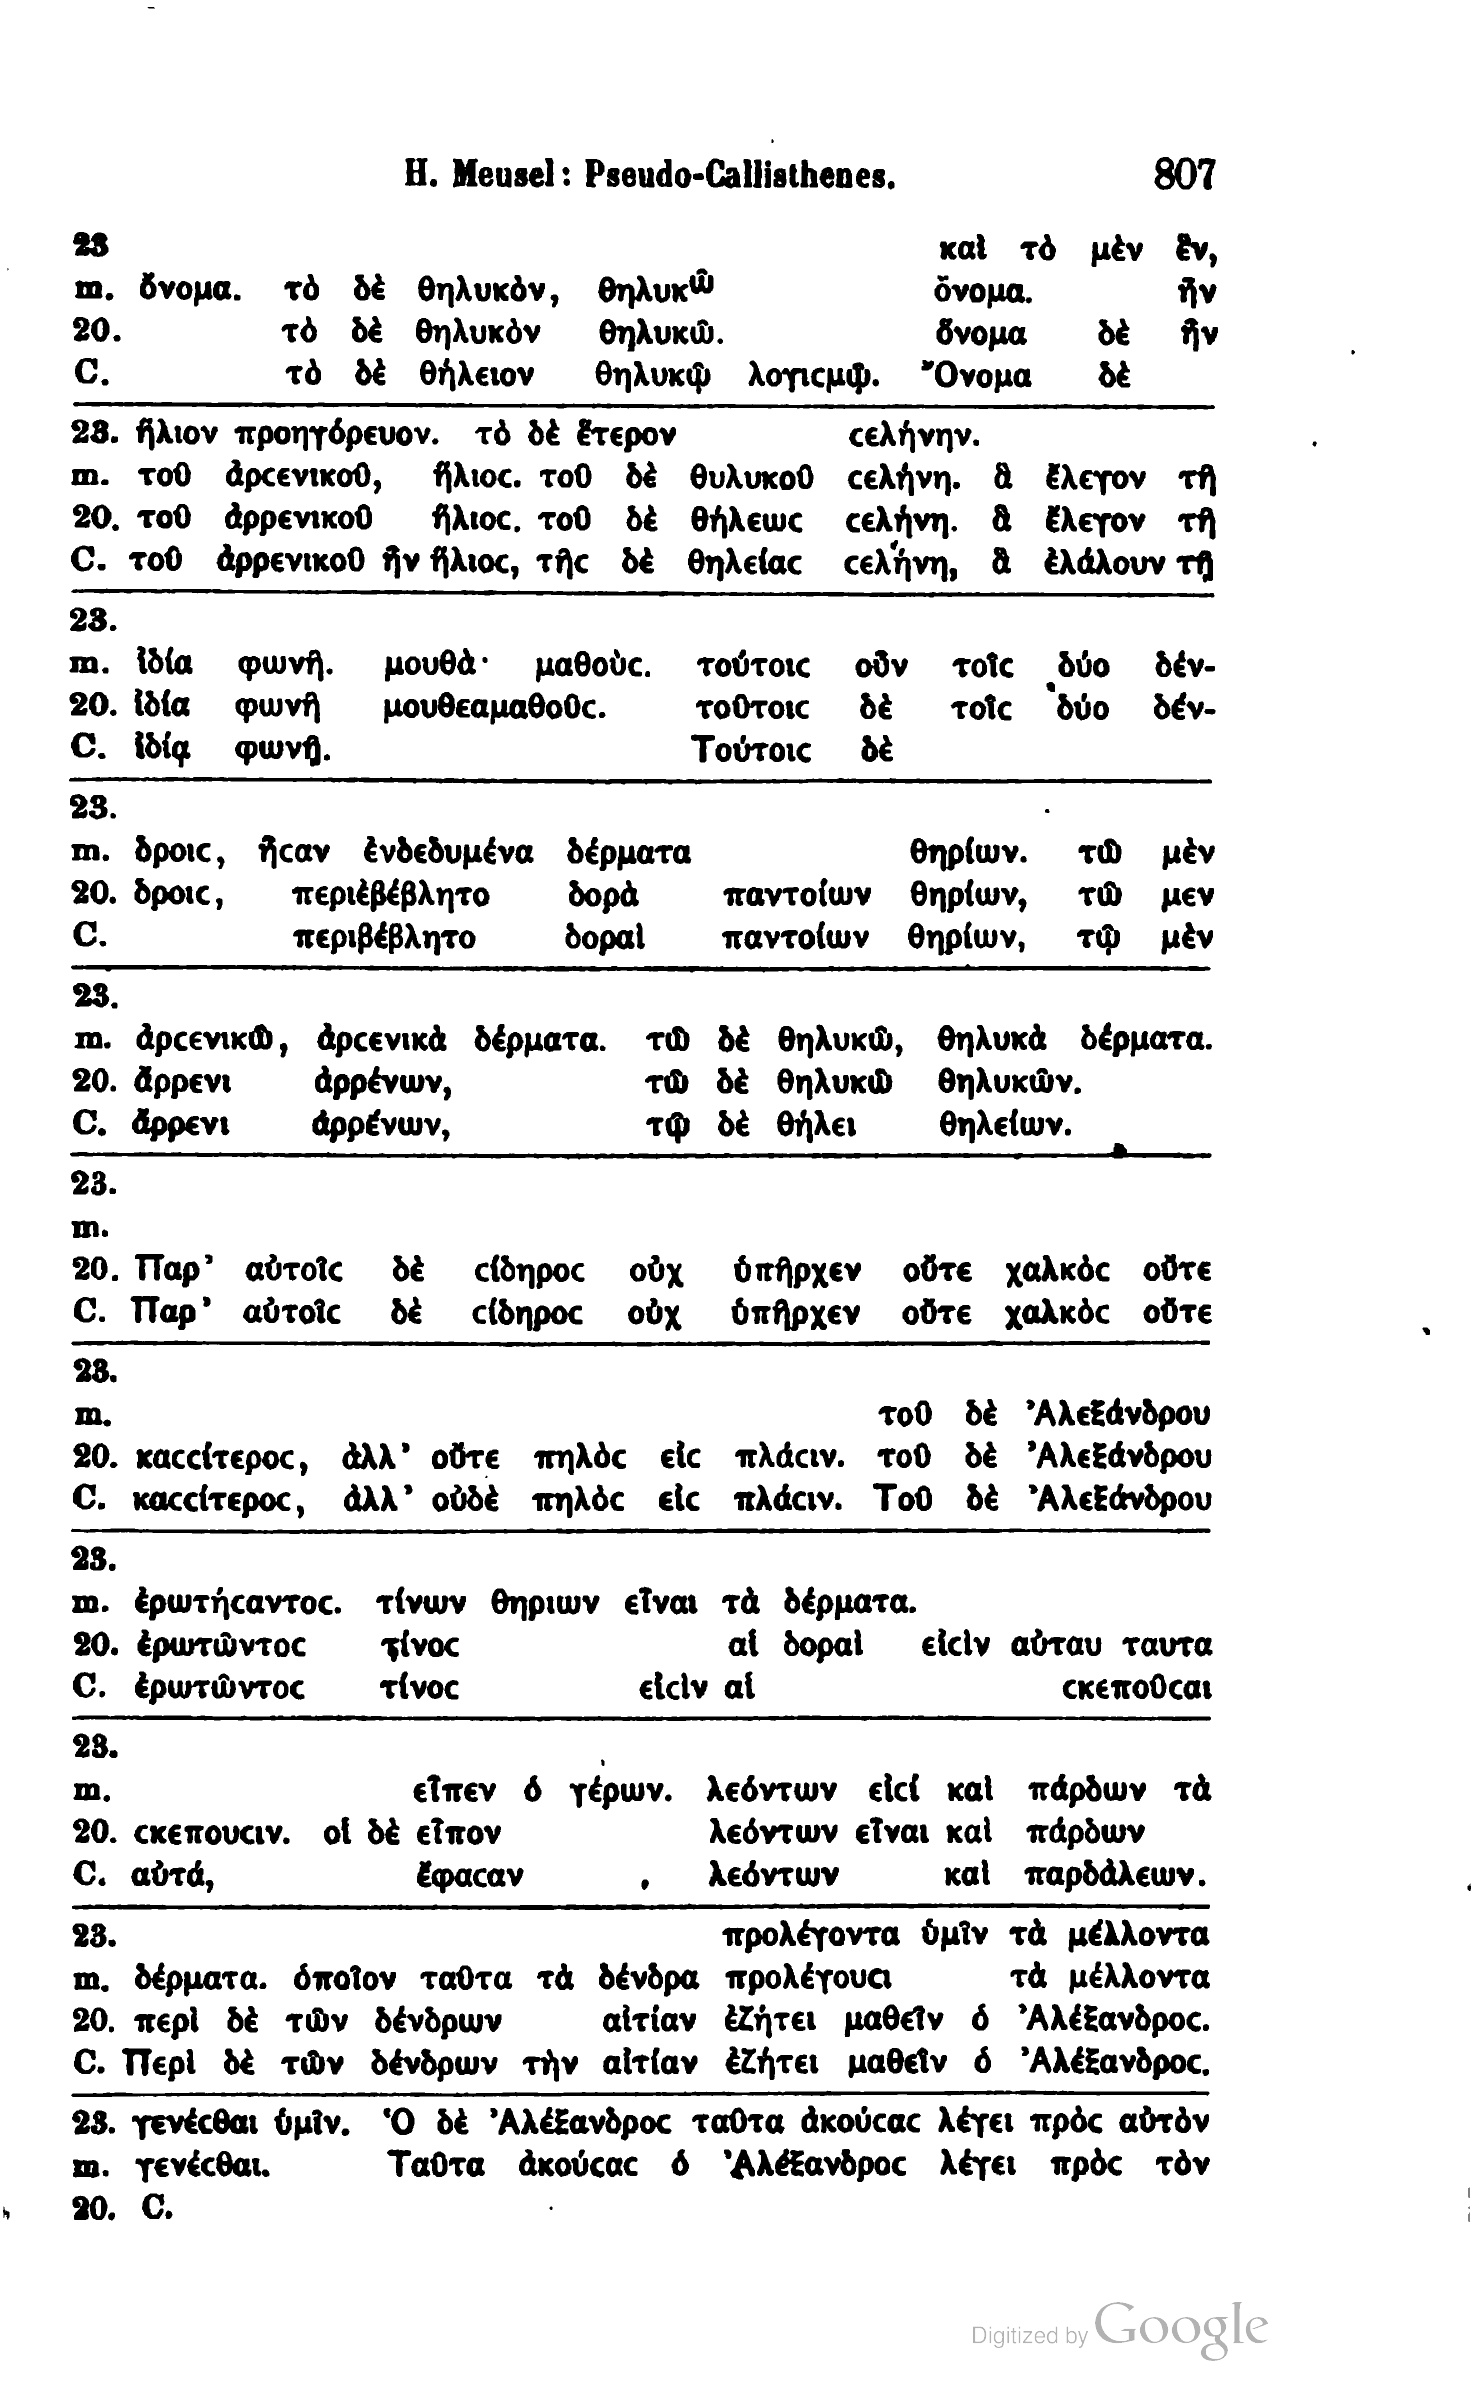 H. Meusel: Pseudo-Callisthenes. 807
23 καὶ τὸ μὲν ἓν,
m. ὄνομα. τὸ δὲ θηλυκὸν, θηλυκῶ ὄνομα. ἦν
20. τὸ δὲ θηλυκὸν θηλυκῶ. ὄνομα δὲ ἦν
C. τὸ δὲ θήλειον θηλυκῷ λογιϲμῷ. Ὄνομα δὲ
23. ἥλιον προηγόρευον. τὸ δὲ ἕτερον ϲελήνην.
m. τοῦ ἀρϲενικοῦ, ἥλιοϲ. τοῦ δὲ θυλυκοῦ ϲελήνη. ἃ ἔλεγον τῆ
20. τοῦ ἀρρενικοῦ ἥλιοϲ. τοῦ δὲ θήλεωϲ ϲελήνη. ἃ ἔλεγον τῆ
C. τοῦ ἀρρενικοῦ ἦν ἥλιοϲ, τῆϲ δὲ θηλείαϲ ϲελήνη, ἃ ἐλάλουν τῇ
23.
m. ἰδία φωνῆ. μουθὰ· μαθοὺϲ. τούτοιϲ οὖν τοῖϲ δύο δέν-
20. ἰδία φωνῆ μουθεαμαθοῦϲ. τοῦτοιϲ δὲ τοῖϲ δύο δέν-
C. ἰδίᾳ φωνῇ. Τούτοιϲ δὲ
23.
m. δροιϲ, ἦϲαν ἐνδεδυμένα δέρματα θηρίων. τῶ μὲν
20. δροιϲ, περιἐβέβλητο δορὰ παντοίων θηρίων, τῶ μεν
C. περιβέβλητο δοραὶ παντοίων θηρίων, τῷ μὲν
23.
m. ἀρϲενικῶ, ἀρϲενικὰ δέρματα. τῶ δὲ θηλυκῶ, θηλυκὰ δέρματα.
20. ἄρρενι ἀρρένων, τῶ δὲ θηλυκῶ θηλυκῶν.
C. ἄρρενι ἀρρένων, τῷ δὲ θήλει θηλείων.
23.
m.
20. Παρ’ αὐτοῖϲ δὲ ϲίδηροϲ οὐχ ὑπῆρχεν οὔτε χαλκὸϲ οὔτε
C. Παρ’ αὐτοῖϲ δὲ ϲίδηροϲ οὐχ ὑπῆρχεν οὔτε χαλκὸϲ οὔτε
23.
m. τοῦ δὲ Ἀλεξάνδρου
20. καϲϲίτεροϲ, ἀλλ’ οὔτε πηλὸϲ εἰϲ πλάϲιν. τοῦ δὲ Ἀλεξάνδρου
C. καϲϲίτεροϲ, ἀλλ’ οὐδὲ πηλὸϲ εἰϲ πλάϲιν. Τοῦ δὲ Ἀλεξάνδρου
23.
m. ἐρωτήϲαντοϲ. τίνων θηριων εἶναι τὰ δέρματα.
20. ἐρωτῶντοϲ τίνοϲ αἱ δοραὶ εἰϲὶν αὑταυ ταυτα
C. ἐρωτῶντοϲ τίνοϲ εἰϲὶν αἱ ϲκεποῦϲαι
23.
m. εἶπεν ὁ γέρων. λεόντων εἰϲί καὶ πάρδων τὰ
20. ϲκεπουϲιν. οἱ δὲ εἶπον λεόντων εἶναι καὶ πάρδων
C. αὐτά, ἔφαϲαν λεόντων καὶ παρδάλεων.
23. προλέγοντα ὑμῖν τὰ μέλλοντα
m. δέρματα. ὁποῖον ταῦτα τὰ δένδρα προλέγουϲι τὰ μέλλοντα
20. περὶ δὲ τῶν δένδρων αἰτίαν ἐζήτει μαθεῖν ὁ Ἀλέξανδροϲ.
C. Περὶ δὲ τῶν δένδρων τὴν αἰτίαν ἐζήτει μαθεῖν ὁ Ἀλέξανδροϲ.
23. γενέϲθαι ὑμῖν. Ὁ δὲ Ἀλέξανδροϲ ταῦτα ἀκούϲαϲ λέγει πρὸϲ αὐτὸν
m. γενέϲθαι. Ταῦτα ἀκούϲαϲ ὁ Ἀλέξανδροϲ λέγει πρὸϲ τὸν
20. C.
Digitized by Google